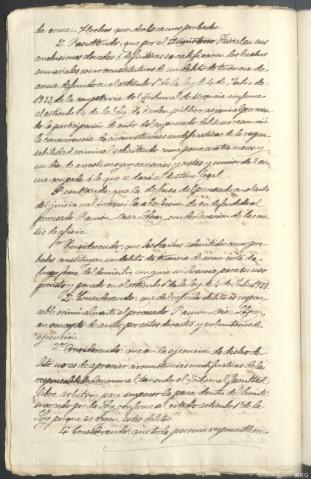 de arma. Hechos que declaramos probados.
2º Resultando, que por el Ministerio Fiscal en sus
conclusiones elevadas a definitivas se calificaron los hechos
sumariales como constitutivos de un delito de tenencia de
arma definido en el artículo 1º de la Ley de 4 de Julio de
1933, de la competencia del Tribunal de Urgencia conforme
al artículo de la Ley de Orden público
la participación de autor del procesado del
la concurrencia de circunstancias modificativas de la respon-
sabilidad criminal y solicitando cuatro meses y
un día de arresto mayor accesorias y costas y comiso del ar-
ma ocupada a la que se dará el destino legal.
Resultando, que la defensa del procesado en el acto
del juicio oral interesó la absolución de su defendido el
procesado Ramón López, con declaración de las cos-
tas de oficio.
1º Considerando: que los hechos declarados como pro-
bados constituyen un delito de tenencia de arma corta de
fuego fuera del domicilio, sin guía ni licencia para su uso
previsto y penado en el artículo 1º de la Ley de 4 de Julio 1933.
2º Considerando: que del referido delito es respon-
sable criminalmente el procesado Ramón López,
en concepto de autor por actos directos y voluntarios de
ejecución.
3º Considerando: que en la ejecución de dicho de-
lito no es de apreciar circunstancias modificativas de la
responsabilidad criminal teniendo el Tribunal facultad
libre arbitrio para imponer la pena dentro del límite
marcado por la Ley, conforme al citado artículo 1º de la
Ley porque se rigen estos delitos.
4º Considerando: que toda persona responsable cri-